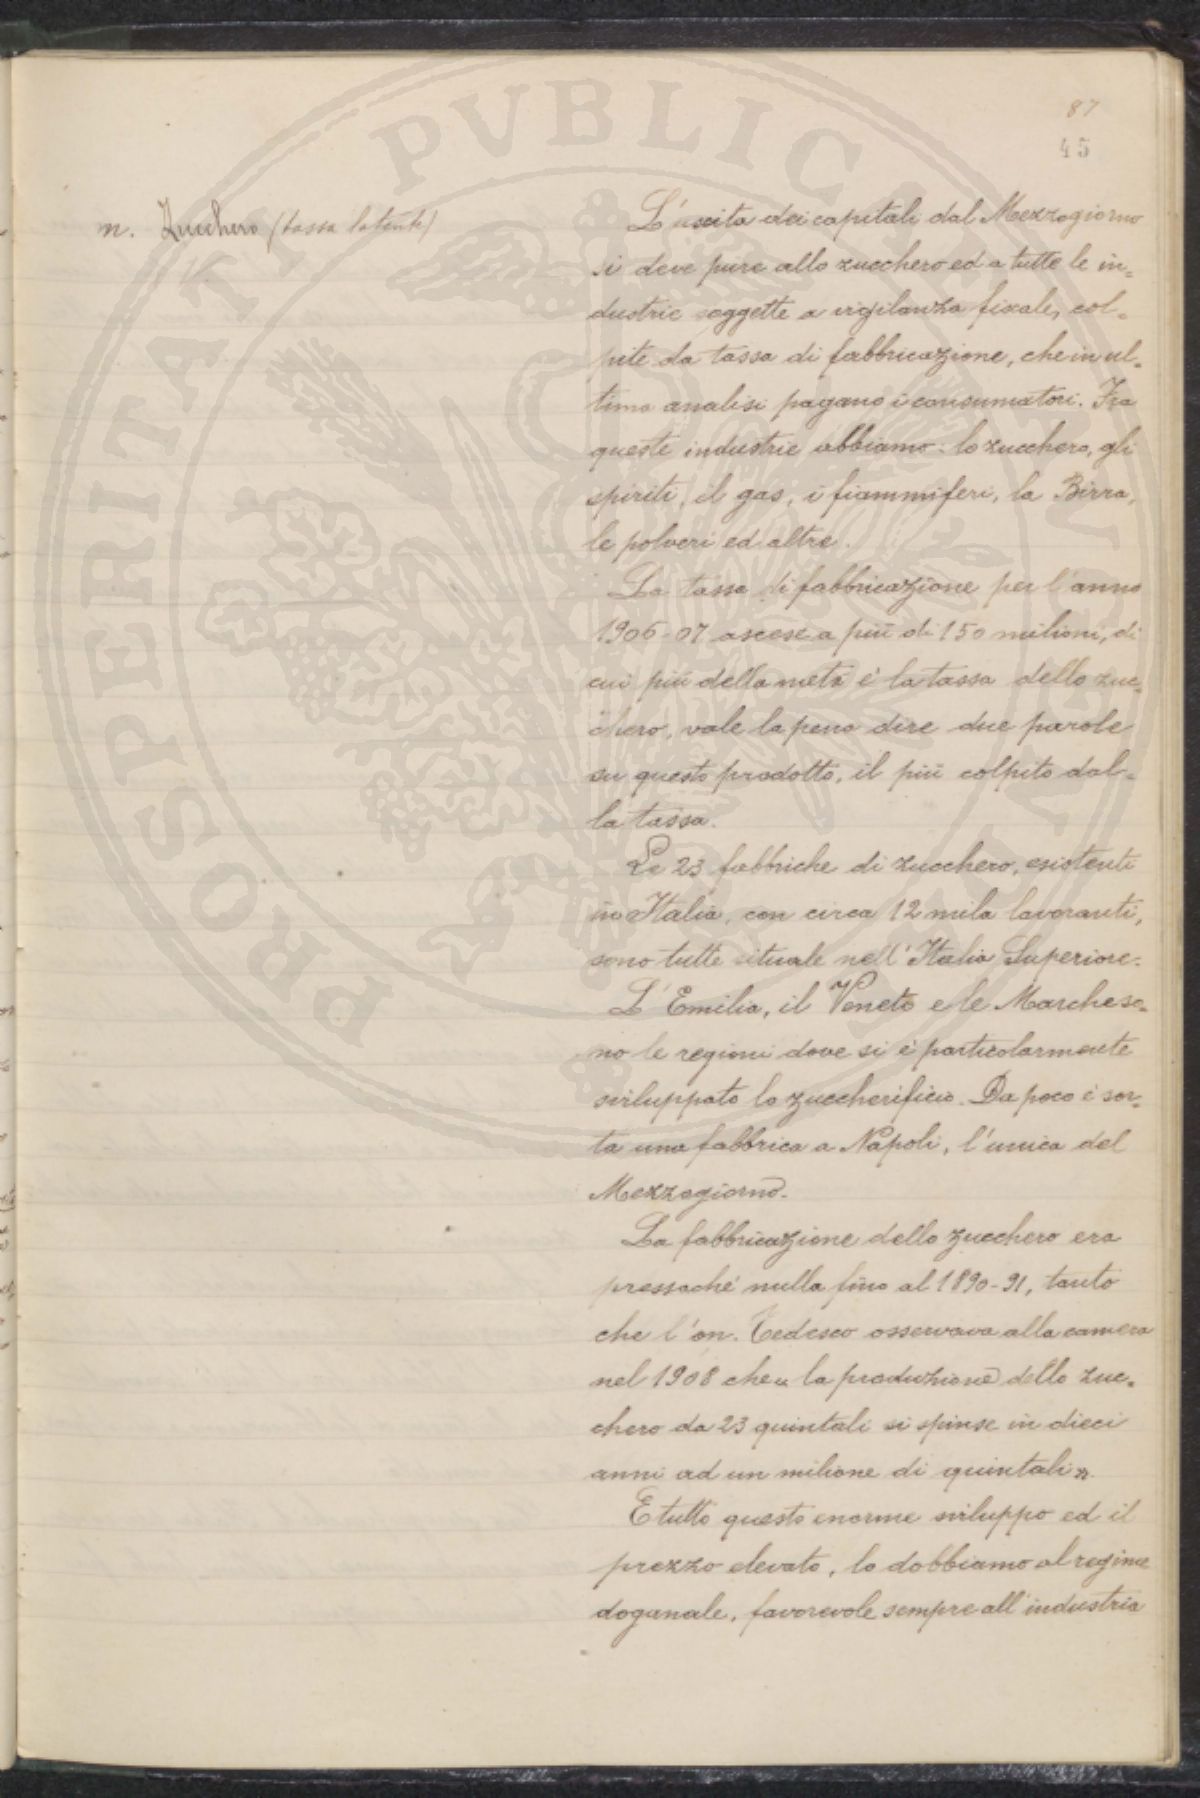 87
45
m. Zucchero (tassa latente)
L'uscita dei capitali dal Mezzogiorno
si deve pure allo zucchero ed a tutte le in=
dustrie soggette a vigilanza fiscale, col=
pite da tassa di fabbricazione, che in ul=
tima analisi pagano i consumatori. Fra
queste industrie abbiamo: lo zucchero, gli
spiriti, il gas, i fiammiferi, la Birra,
le polveri ed altre.
La tassa di fabbricazione per l'anno
1906-07 ascese a più di 150 milioni, di
cui più della metà è la tassa dello zuc=
chero, vale la pena dire due parole
su questo prodotto, il più colpito dal=
la tassa.
Le 23 fabbriche di zucchero, esistenti
in Italia, con circa 12 mila lavoranti,
sono tutte situate nell'Italia Superiore.
L'Emilia, il Veneto e le Marche so=
no le regioni dove si è particolarmente
sviluppato lo zuccherificio. Da poco è sor=
ta una fabbrica a Napoli, l'unica del
Mezzogiorno.
La fabbricazione dello zucchero era
pressoché nulla fino al 1890-91, tanto
che l'on. Tedesco osservava alla camera
nel 1908 che « la produzione dello zuc=
chero da 23 quintali si spinse in dieci
anni ad un milione di quintali ».
E tutto questo enorme sviluppo ed il
prezzo elevato, lo dobbiamo al regime
doganale, favorevole sempre all'industria
PROSPERITATI PVBLICAE